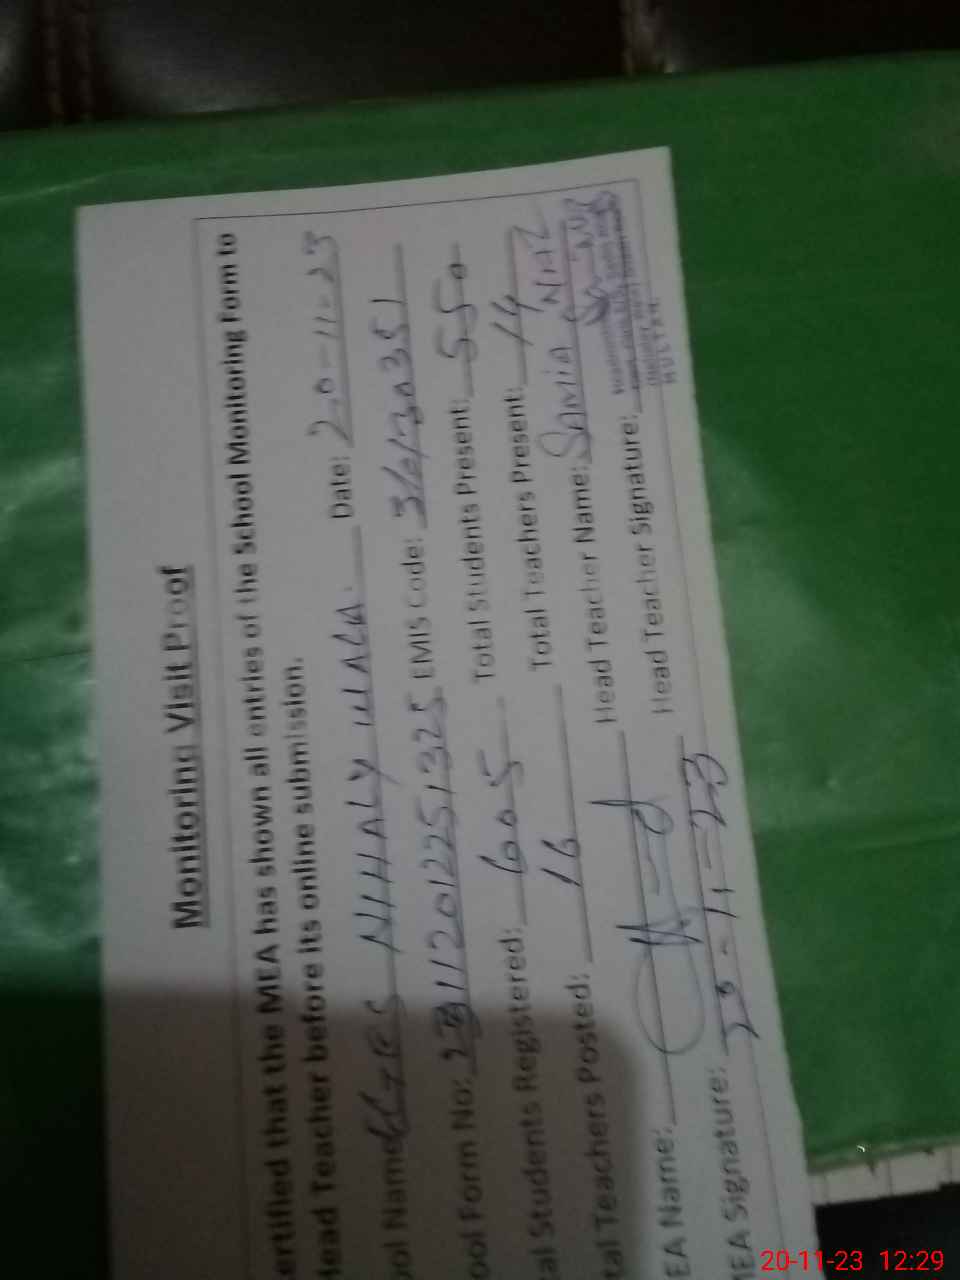 Monitoring Visit Proof
ertified that the MEA has shown all entries of the School Monitoring Form to
Head Teacher before its online submission.
ool Name: NIHALY WALA. Date: 20-11-23
ool Form No: 23112012251325 EMIS Code:
al Students Registered: 605 Total Students Present: 550
tal Teachers Posted: 16 Total Teachers Present: 14
EA Name: Head Teacher Name: SAMIA NIAZ
MEA Signature: 20-11-23 Head Teacher Signature:
MULTAN
20-11-23 12:29